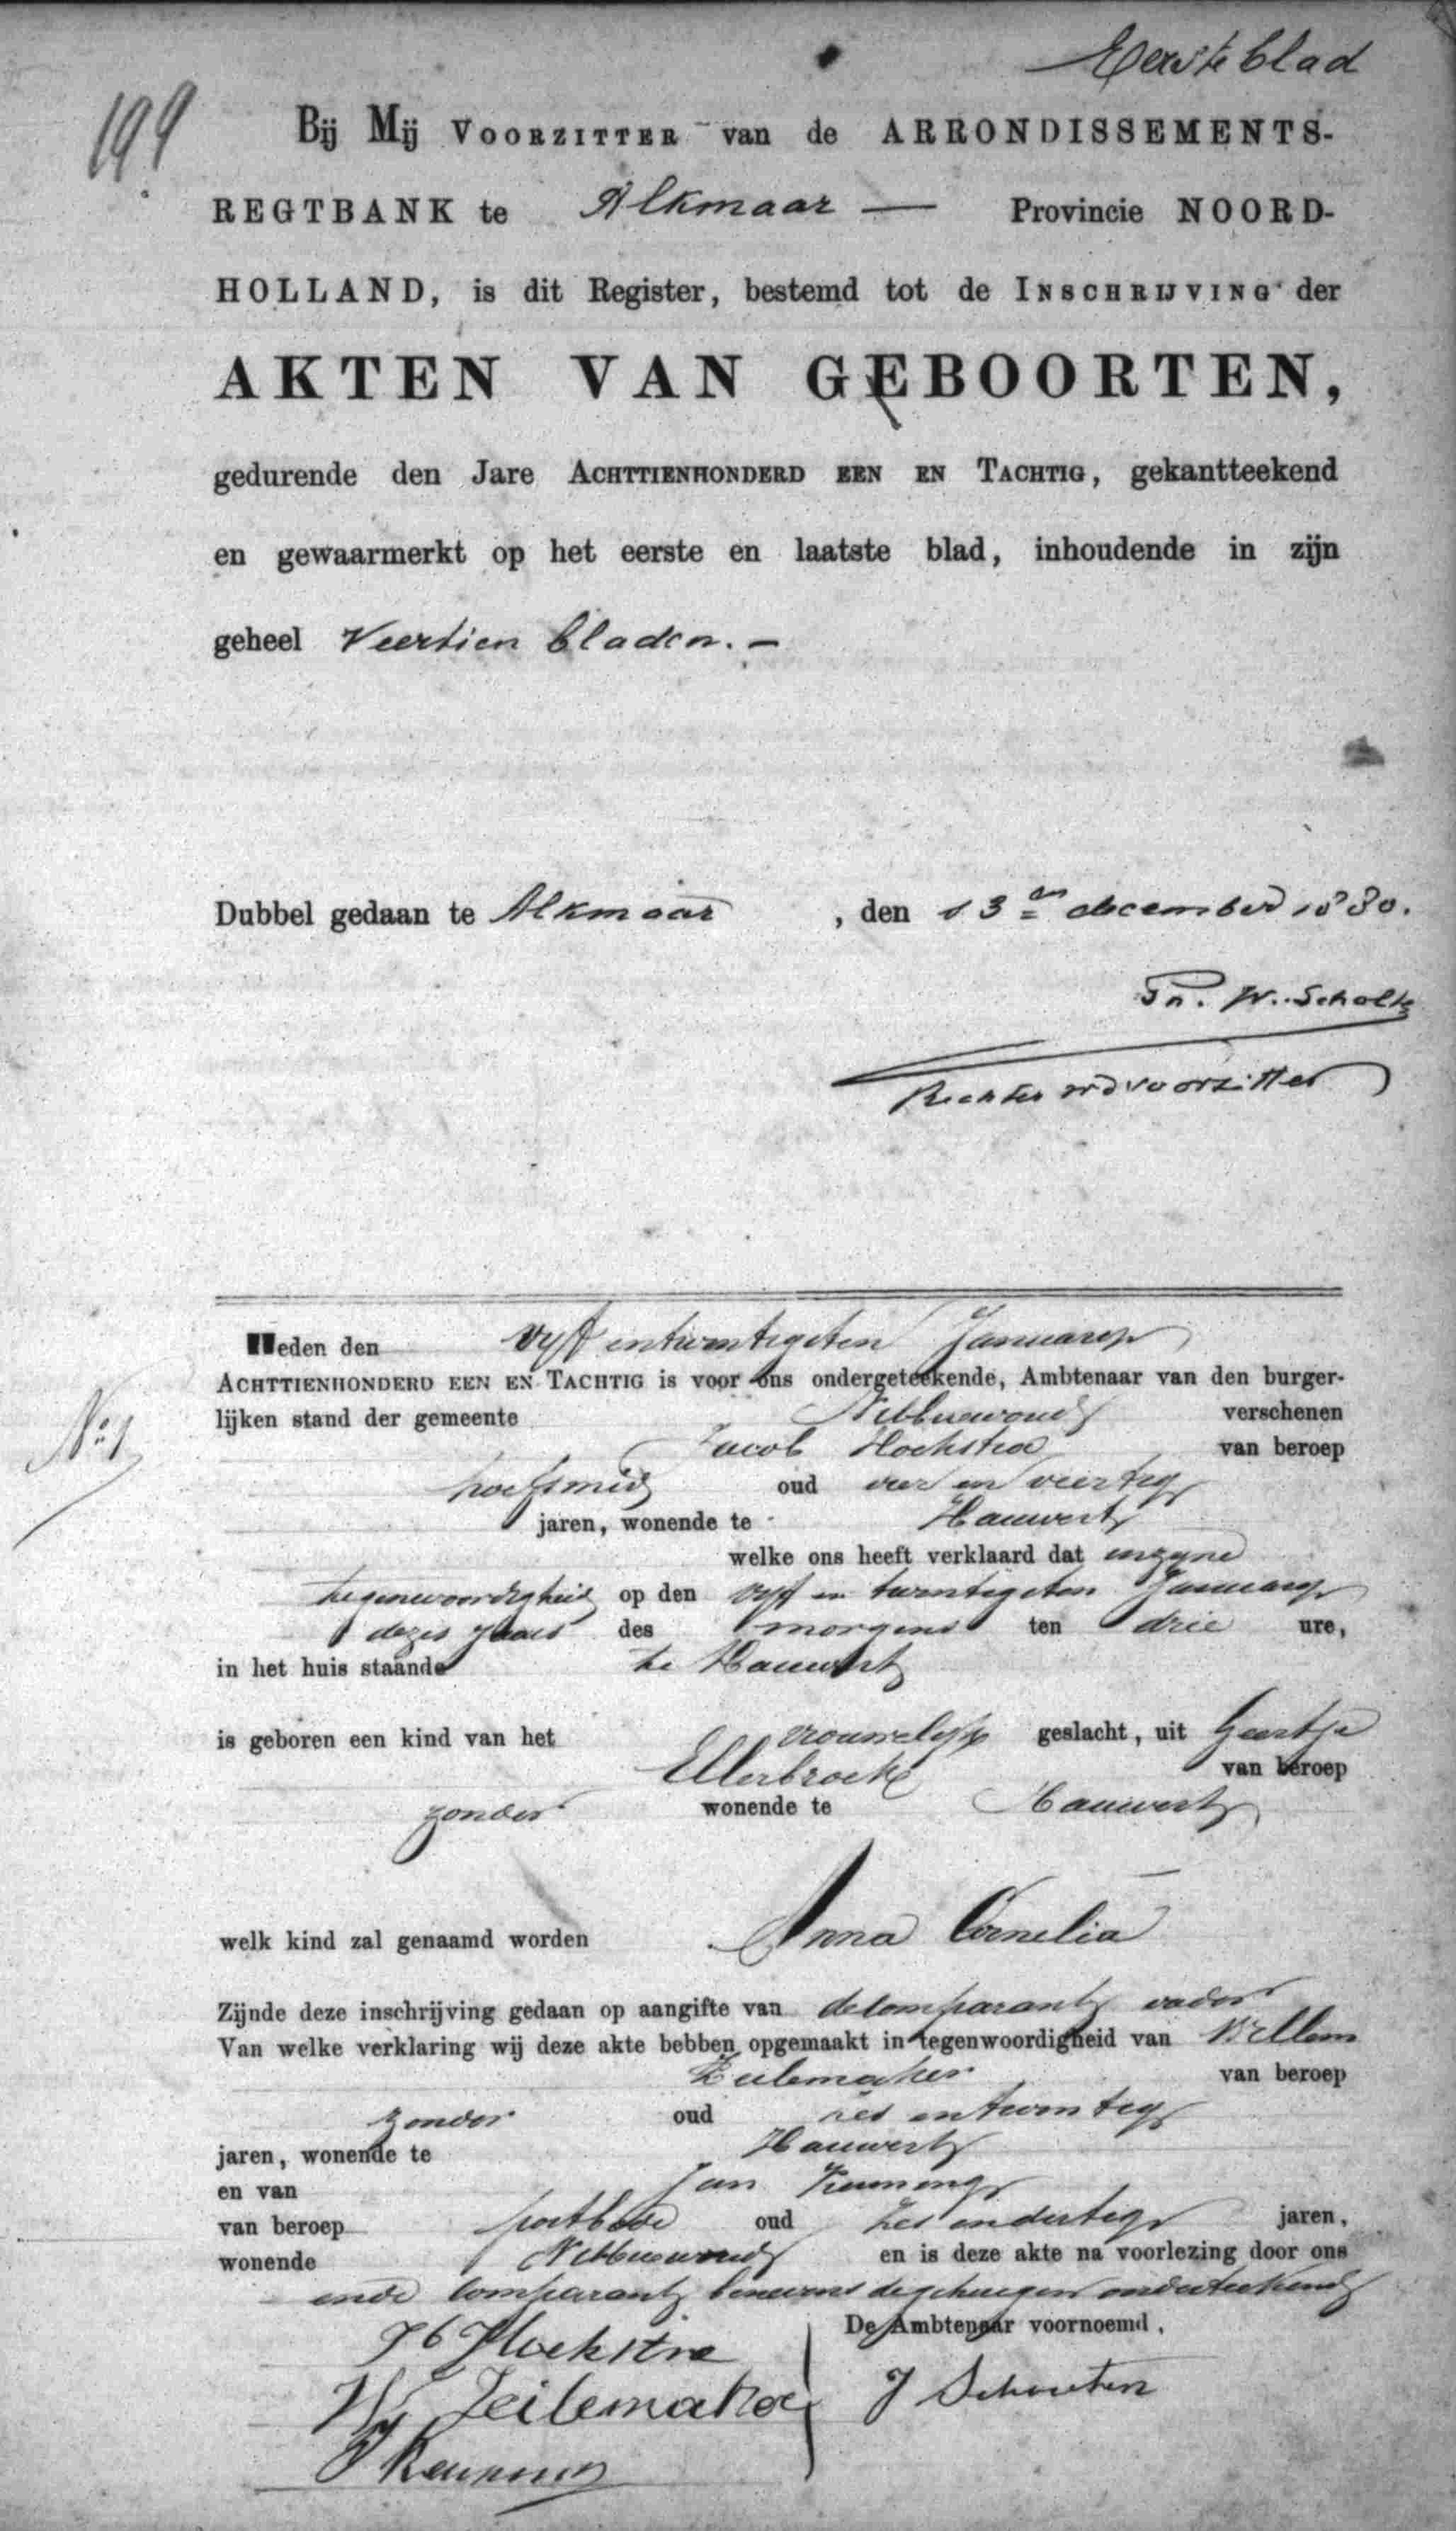 Eerste blad
199
Bij Mij VOORZITTER van de ARRONDISSEMENTS-
REGTBANK te Alkmaar — Provincie NOORD-
HOLLAND, is dit Register, bestemd tot de INSCHRIJVING der
AKTEN VAN GEBOORTEN,
gedurende den Jare ACHTTIENHONDERD EEN EN TACHTIG, gekantteekend
en gewaarmerkt op het eerste en laatste blad, inhoudende in zijn
geheel Veertien bladen. –
Dubbel gedaan te Alkmaar, den 13den december 1880.
W. Scholtz
Rechter vvd voorzitter
Heden den vyf en twintigsten January
ACHTTIENHONDERD EEN EN TACHTIG is voor ons ondergeteekende, Ambtenaar van den burger-
No 1
lijken stand der gemeente Nibbixwoud verschenen
Jacob Hoekstra van beroep
hoefsmid oud vier en veertig
jaren, wonende te Hauwert
welke ons heeft verklaard dat in zyne
tegenwoordigheid op den vyf en twintigsten January
dezes jaars des morgens ten drie ure,
in het huis staande te Hauwert
is geboren een kind van het vrouwelijk geslacht, uit Geertje
Ellerbroek van beroep
zonder wonende te Hauwert
welk kind zal genaamd worden Anna Cornelia
Zijnde deze inschrijving gedaan op aangifte van de comparant vader
Van welke verklaring wij deze akte bebben opgemaakt in tegenwoordigheid van Willem
Zeilemaker van beroep
zonder oud zes en twintig
jaren, wonende te Hauwert
en van Jan Keuning
van beroep postbode oud zes en dertig jaren,
wonende Nibbixwoud en is deze akte na voorlezing door ons
en de Comparant benevens de getuigen onderteekend
De Ambtenaar voornoemd,
Jb Hoekstra
W Zeilemaker
J Schouten
J Keuning